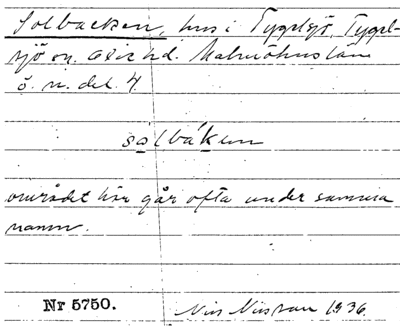 Solbacken, hus i Tygelsjö, Tygel-
sjö sn. Oxie hd. Malmöhus län
ö. n. del. 4.
sɑlbákən
området här går ofta under samma
namn.
Nr 5750. Nils Nilsson 1936.